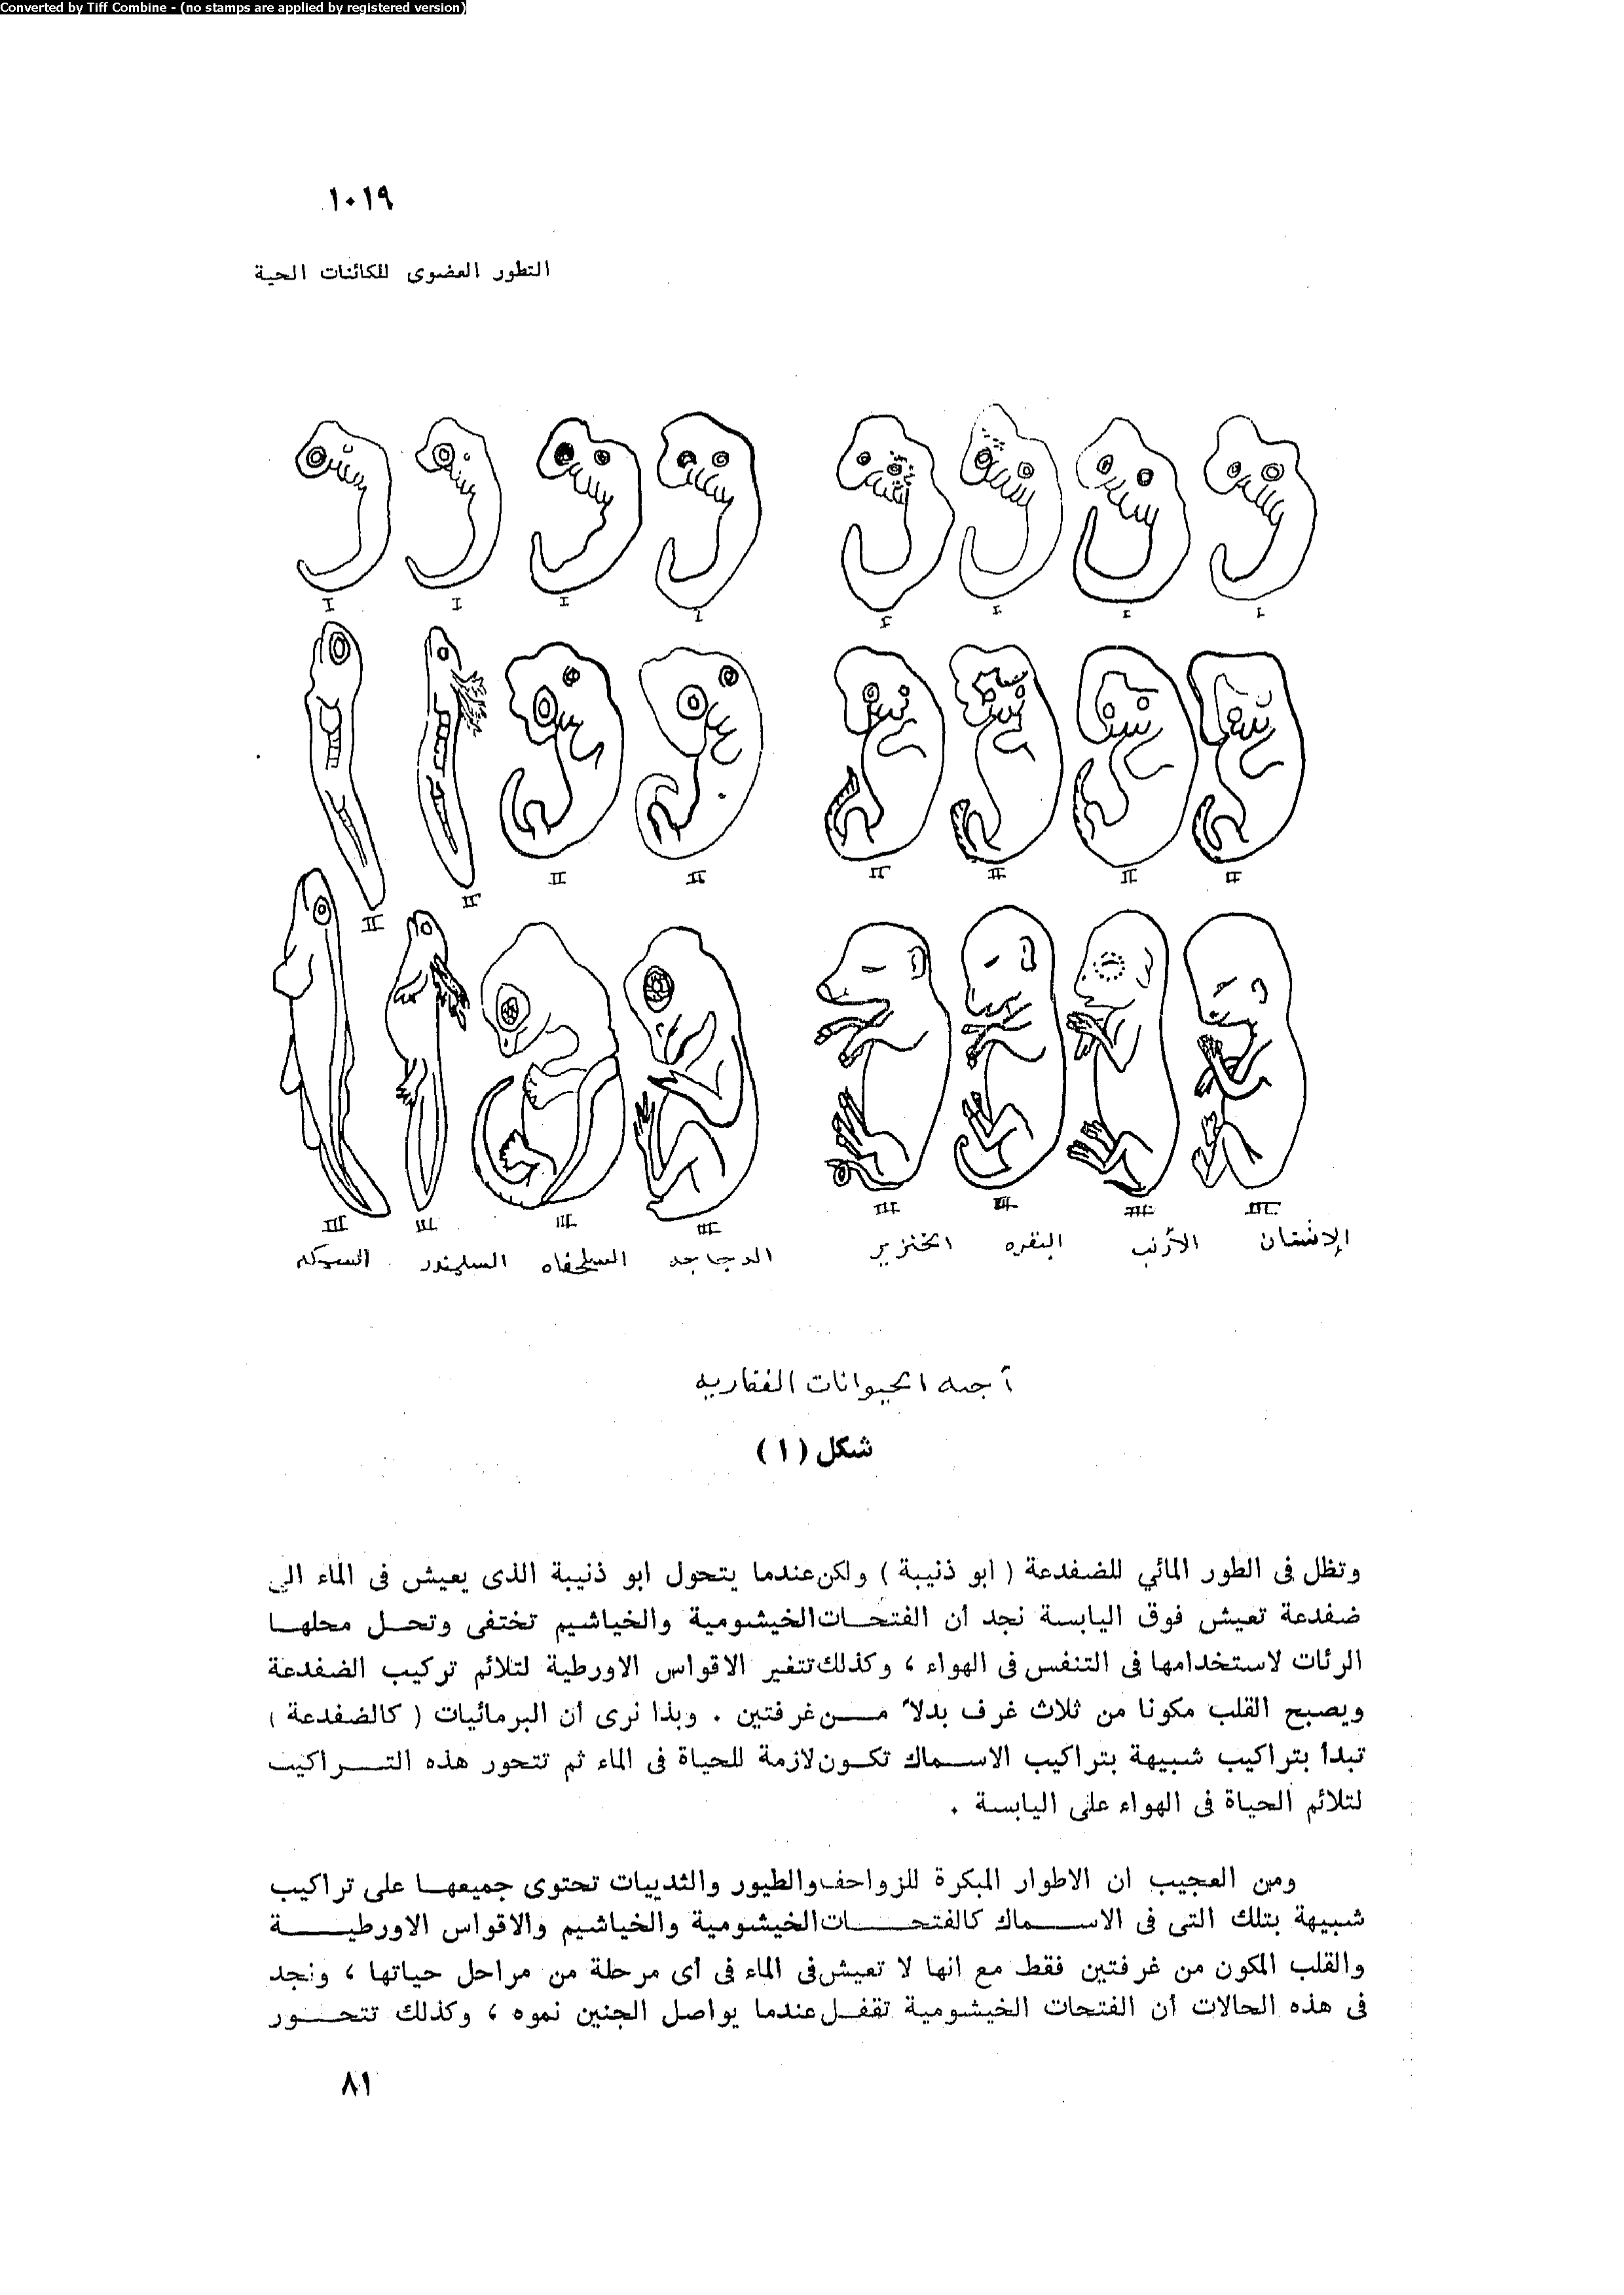 Converted by Tiff Combine - (no stamps are applied by registered version)
١٠١٩
التطور العضوى للكائنات الحية
I I I I I I I I
II II II II II II II II
III III III III III III III III
الإنسان الأرنب البقره الخنزير الدجاجه السلحفاه السلمندر السمكه
أجنه الحيوانات الفقاريه
شكل (١)
وتظل فى الطور المائي للضفدعة ( ابو ذنيبة ) ولكن عندما يتحول ابو ذنيبة الذى يعيش فى الماء الى
ضفدعة تعيش فوق اليابسة نجد أن الفتحات الخيشومية والخياشيم تختفى وتحل محلها
الرئات لاستخدامها فى التنفس فى الهواء ، وكذلك تتغير الاقواس الاورطية لتلائم تركيب الضفدعة
ويصبح القلب مكونا من ثلاث غرف بدلاً من غرفتين . وبذا نرى أن البرمائيات ( كالضفدعة )
تبدأ بتراكيب شبيهة بتراكيب الاسماك تكون لازمة للحياة فى الماء ثم تتحور هذه التراكيب
لتلائم الحياة فى الهواء على اليابسة .
ومن العجيب ان الاطوار المبكرة للزواحف والطيور والثدييات تحتوى جميعها على تراكيب
شبيهة بتلك التى فى الاسماك كالفتحات الخيشومية والخياشيم والاقواس الاورطية
والقلب المكون من غرفتين فقط مع انها لا تعيش فى الماء فى أى مرحلة من مراحل حياتها ، ونجد
فى هذه الحالات أن الفتحات الخيشومية تقفل عندما يواصل الجنين نموه ، وكذلك تتحور
٨١